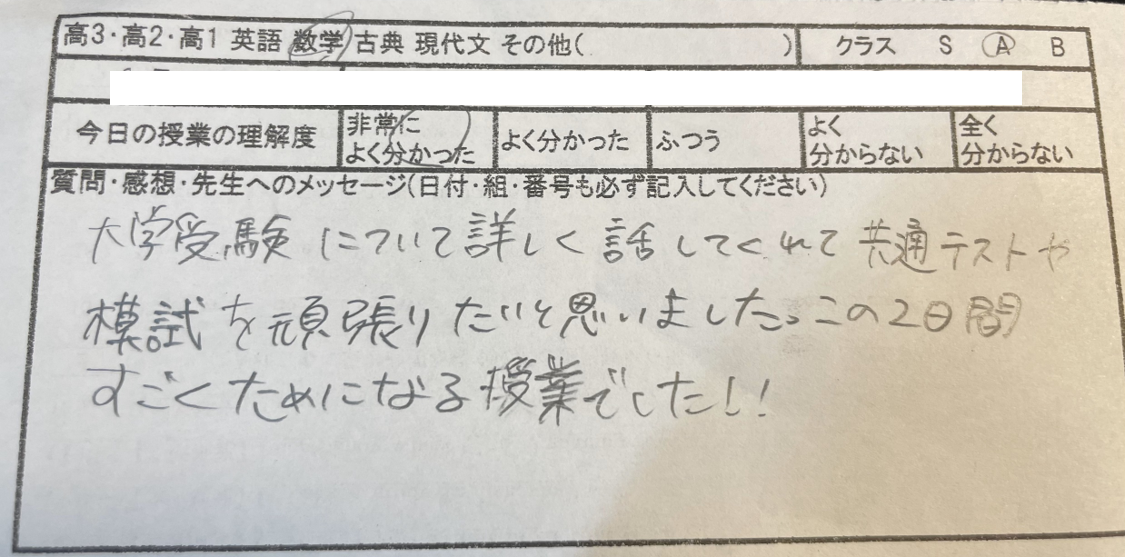 高3・高2・高1 英語 数学 古典 現代文 その他( ) クラス S A B
今日の授業の理解度 非常に よく分かった よく分かった ふつう よく 分からない 全く 分からない
質問・感想・先生へのメッセージ(日付・組・番号も必ず記入してください)
大学受験について詳しく話してくれて共通テストや
模試を頑張りたいと思いました。この2日間
すごくためになる授業でした!!